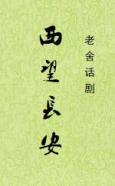 老舍话剧
西望长安